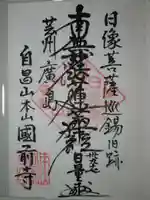 日像菩薩巡錫旧跡
南無妙法蓮華経
芸州廣島
自昌山本山國前寺